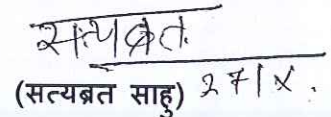 सत्यब्रत.
(सत्यब्रत साहु) २७/४.